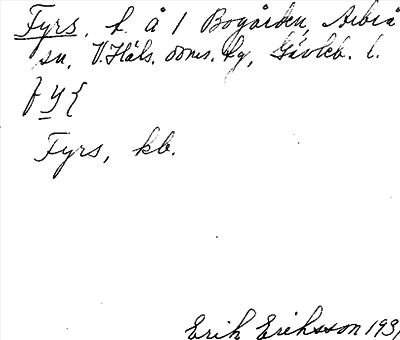 Fyrs. h. å 1 Bogården, Arbrå
sn, V. Häls. doms. tg, Gävleb. l.
fy̲ʃ
Fyrs, kb.
Erik Eriksson 193